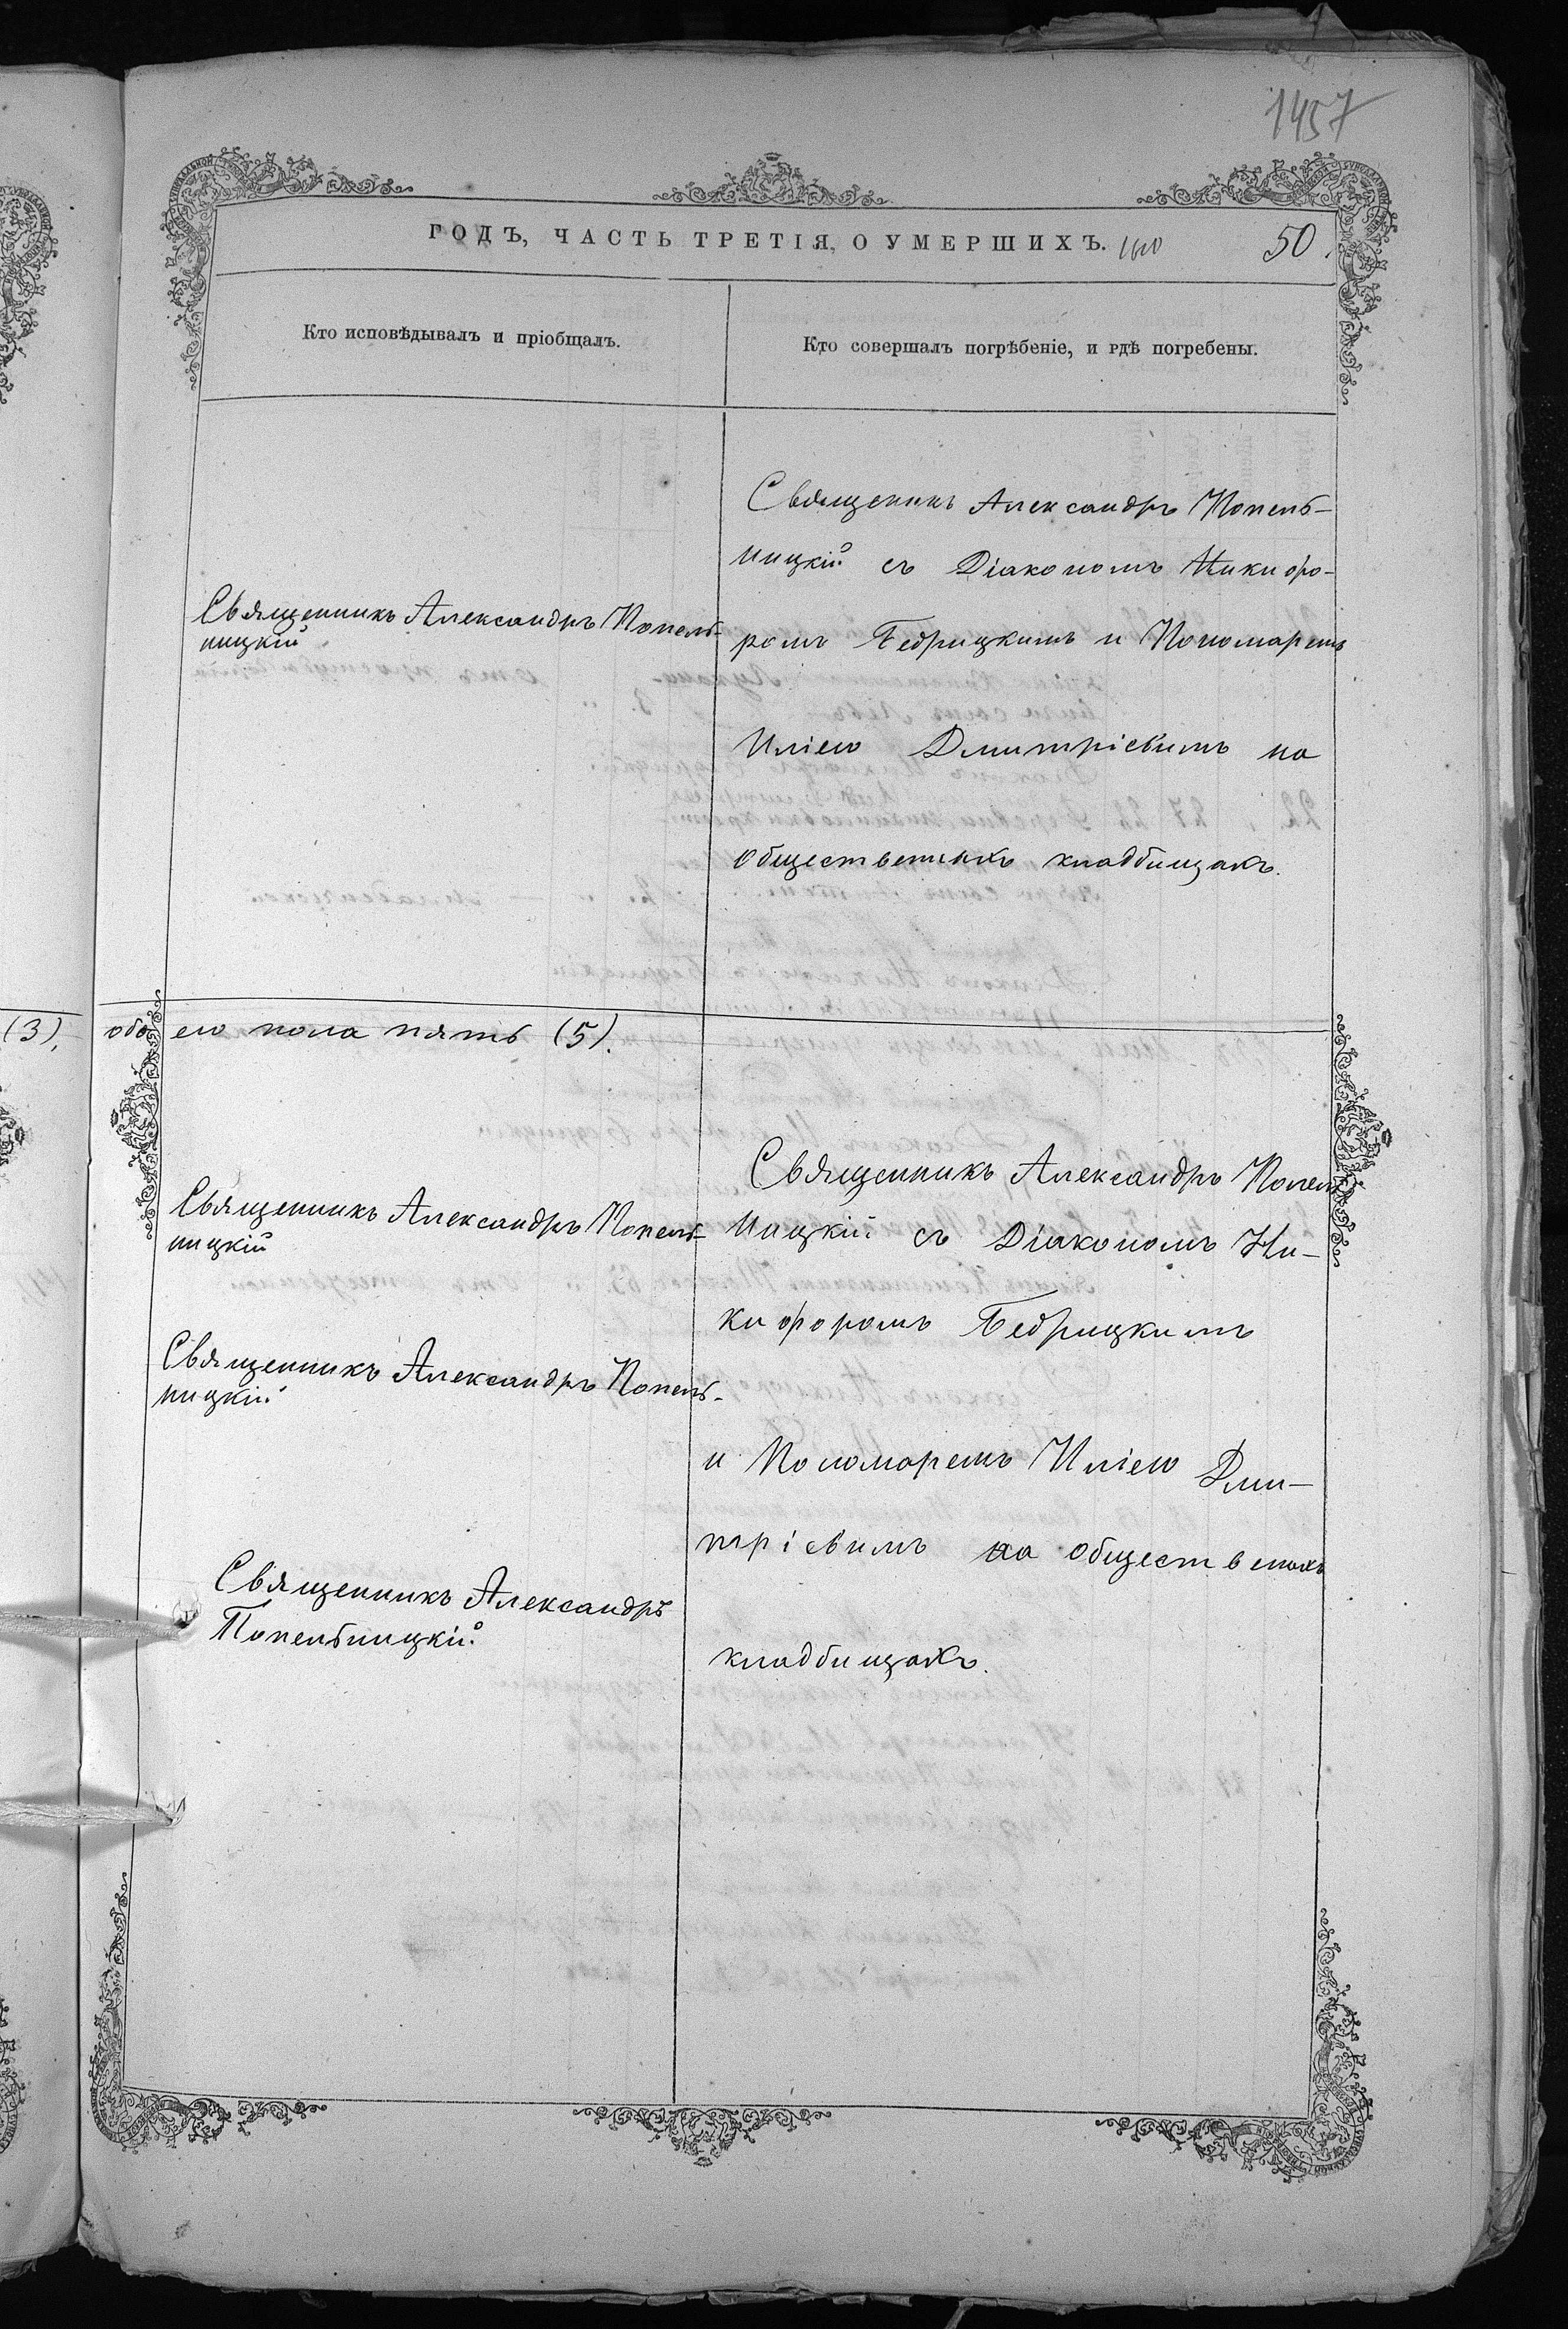 1457
ГОДЪ, ЧАСТЬ ТРЕТІЯ, О УМЕРШИХЪ.
50.
Кто исповѣдывалъ и пріобщалъ.
Кто совершалъ погрѣбеніе, и гдѣ погребены.
Священникъ Александръ Попель-
ницкій
Священикъ Александръ Попель-
ницкій съ Діакономъ Никифо-
ромъ Бедрицкимъ и Пономаремъ
Иліею Дмитріевимъ на
общественныхъ кладбищахъ.
(3), обоего пола пять (5).
Священникъ Александръ Попель-
ницкій
Священникъ Александръ Попель-
ницкій
Священникъ Александръ
Попельницкій
Священникъ Александръ Попель
ницкій съ Діакономъ Ни-
кифоромъ Бедрицкимъ
и Пономаремъ Иліею Дми-
тріевимъ на общественыхъ
кладбищахъ.